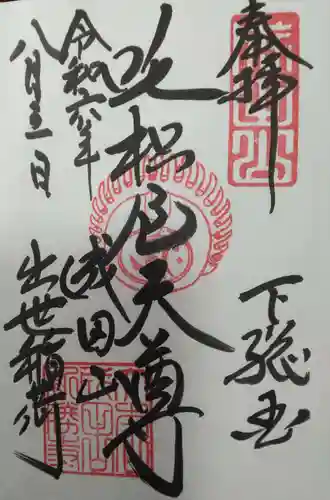 奉拝
下総国
吒枳尼天尊
成田山
出世稲荷
令和六年
八月